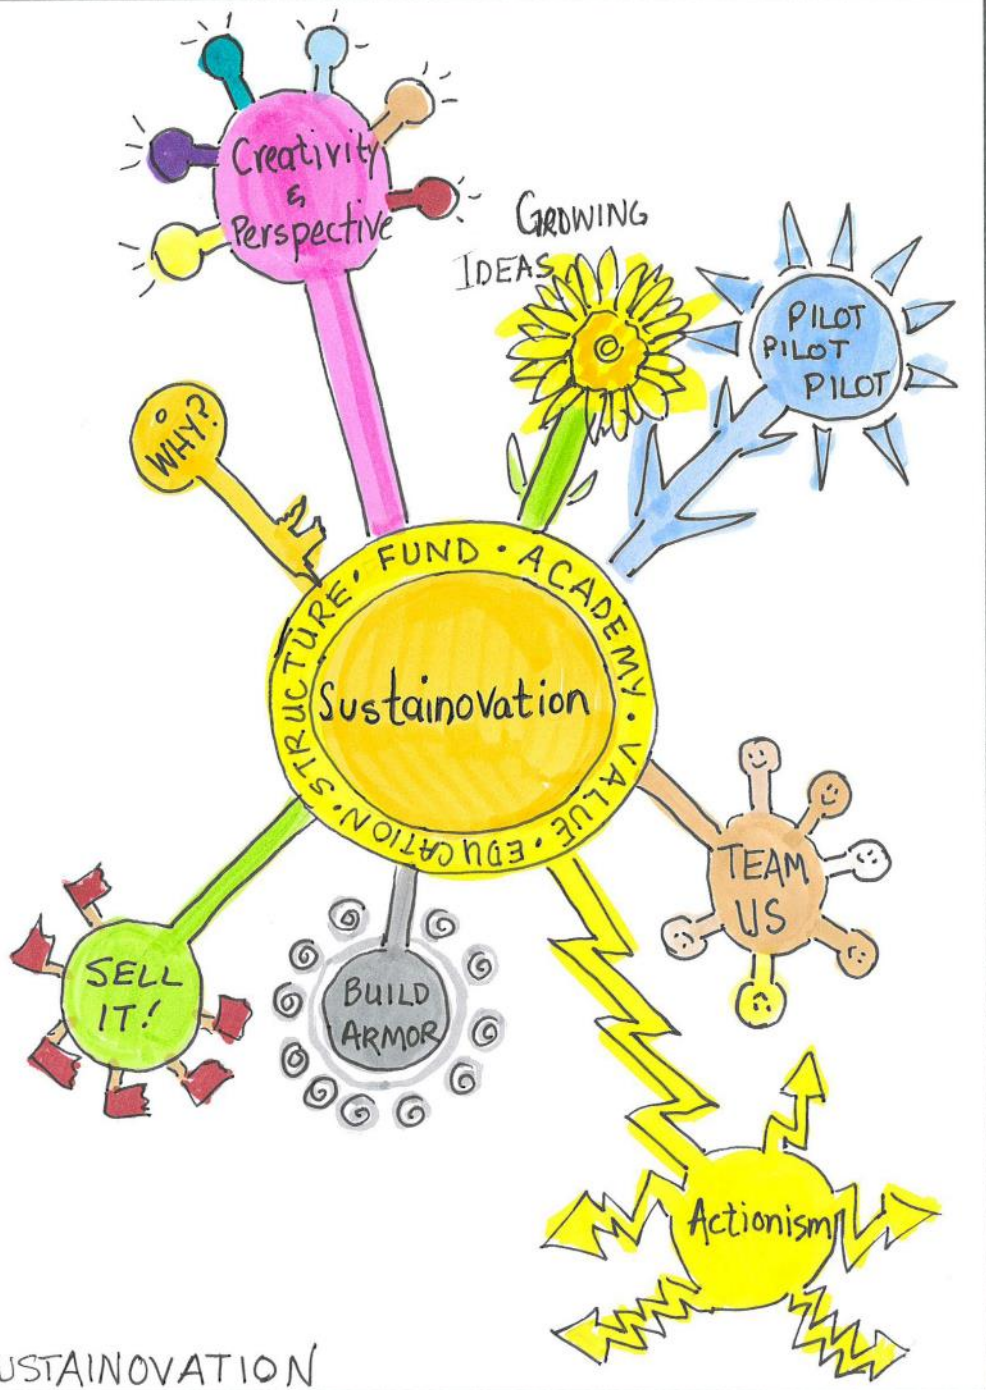 Creativity
&
Perspective
GROWING
IDEAS
PILOT
PILOT
PILOT
WHY?
STRUCTURE • FUND • ACADEMY • VALUE • EDUCATION •
Sustainovation
TEAM
US
SELL
IT!
BUILD
ARMOR
Actionism
USTAINOVATION